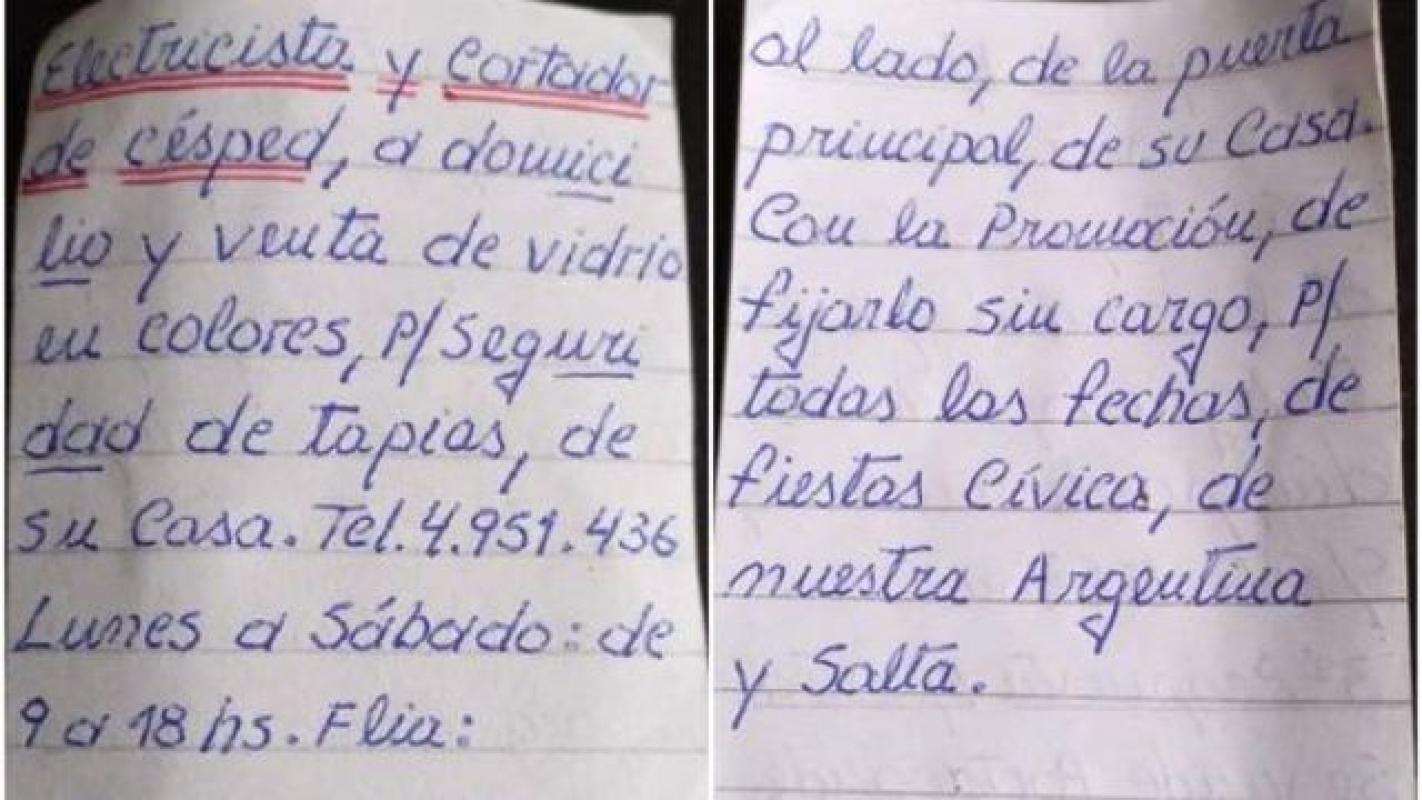 Electricista y Cortador
de césped, a domici
lio y venta de vidrio
en colores, P/Seguri
dad de tapias, de
su Casa. Tel. 4.951.436
Lunes a Sábado: de
9 a 18 hs. Flia:
al lado, de la puerta
principal, de su Casa.
Con la Promoción, de
fijarlo sin cargo, P/
todas las fechas, de
fiestas Cívica, de
nuestra Argentina
y Salta.